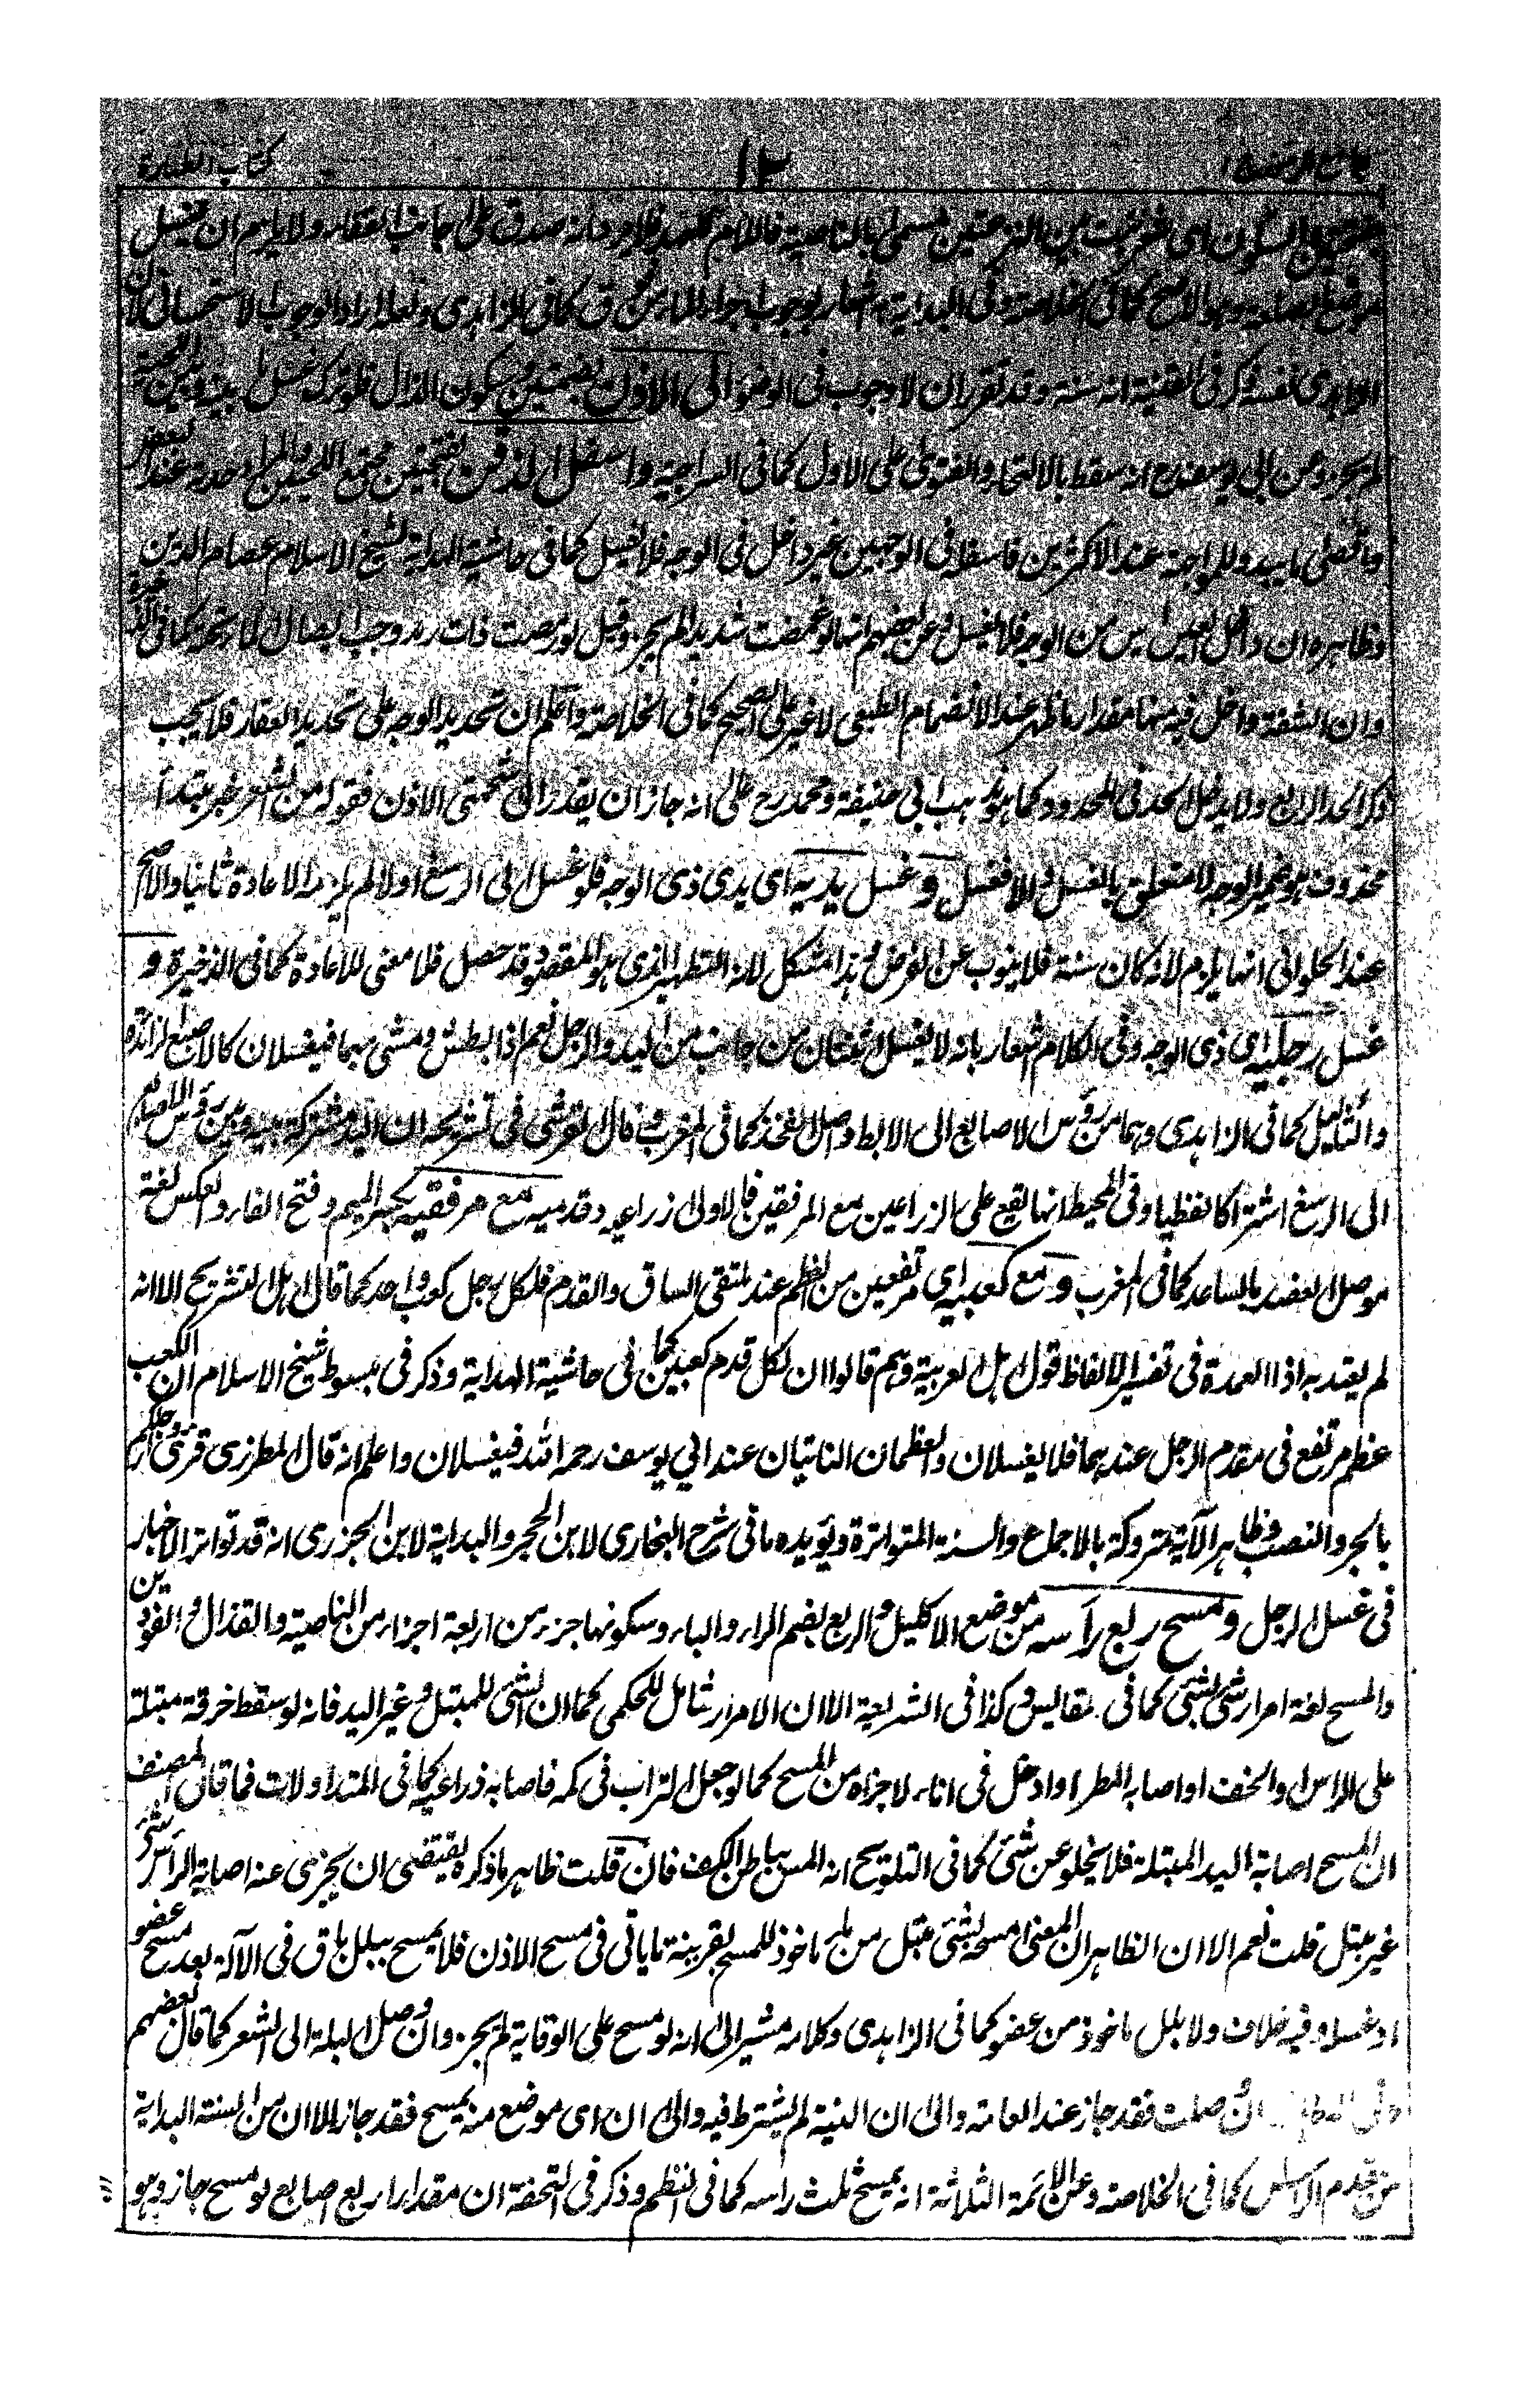 جامع الرموز ١٢ كتاب الطهارة
السكون اى بين النزعتين مسمى بالناصية فاللام للعهد فلا يرد انه صدق على جانب القفا ولا يلزم ان يغسل
وهو الاصح كما فى الخلاصة وفى البداية اشعار بوجوب كما فى الزاهدى ولعله اراد الوجوب الاستحسانى لان
الزاهدى نفسه ذكر فى القنية انه سنة وقد تقرر ان لا وجوب فى الوضوء الى الاذن بضمتين وسكون الذال فلو ترك غسل بينه وبين اللحية
لم يجز وعن ابى يوسف رح انه سقط بالالتحاء والفتوى على الاول كما فى السراجية واسفل الذقن بفتحتين مجتمع اللحيين والمراد حده عند بعض
واقصى ما يبدو للمواجهة عند الاكثرين فاسفله فى الوجهين غير داخل فى الوجه فلا يغسل كما فى حاشية الهداية لشيخ الاسلام عصام الدين
وظاهره ان داخل العين ليس من الوجه فلا يغسل وعن بعضهم انها لو غمضت شديدا لم يجز وقيل لو رمصت ذات رمد وجب ايصال الماء تحته كما فى الذخيرة
وان الشفة داخل فيه منها مقدار ما ظهر عند الانضمام الطبعى لا غير على الصحيح كما فى الخلاصة واعلم ان تحديد الوجه على تحديد العقار فلا يجب
ذكر الحد الرابع ولا يدخل الحد فى المحدود كما هو مذهب ابى حنيفة ومحمد رح على انه جاز ان يقدر الى شحمتى الاذن فقوله من الشعر خبر مبتدأ
محذوف هو ضمير الوجه لا متعلق بالغسل والا فغسل وغسل يديه اى يدى ذى الوجه فلو غسل الى الرسغ اولا لم يلزمه الاعادة ثانيا والاصح
عند الحلوانى انها يلزم لانه كان سنة فلا ينوب عن الفرض وهذا مشكل لانه التطهير الذى هو المقصود وقد حصل فلا معنى للاعادة كما فى الذخيرة و
غسل رجليه اى ذى الوجه وفى الكلام اشعار بانه لا يغسل الثنتان من جانب من اليد والرجل نعم اذا بطش ومشى بهما فيغسلان كالاصبع الزائدة
والثآليل كما فى الزاهدى وهما من رؤس الاصابع الى الابط واصل الفخذ كما فى المغرب وقال القرشى فى تشريحه ان اليد مشتركة بينه وبين رؤس الاصابع
الى الرسغ اشتراكا لفظيا وفى المحيط انها تقع على الذراعين مع المرفقين فالاولى ذراعيه وقدميه مع مرفقيه بكسر الميم وفتح الفاء والعكس لغة
موصل العضد بالساعد كما فى المغرب ومع كعبيه اى مرتفعين من العظم عند ملتقى الساق والقدم فلكل رجل كعب واحد كما قال اهل التشريح الا انه
لم يعتد به اذا العمدة فى تفسير الالفاظ قول اهل العربية وهم قالوا ان لكل قدم كعبين كما فى حاشية الهداية وذكر فى مبسوط شيخ الاسلام ان الكعب
عظم مرتفع فى مقدم الرجل عندهما فلا يغسلان والعظمان الناتيان عند ابى يوسف رحمه الله فيغسلان واعلم انه قال المطرزى قرئ وارجلكم
بالجر والنصب وظاهر الآية متروكة بالاجماع والسنة المتواترة ويؤيده ما فى شرح البخارى لابن الحجر والبداية لابن الجزرى انه قد تواتر الاخبار
فى غسل الرجل ومسح ربع رأسه من موضع الاكليل والربع بضم الراء والباء وسكونها جزء من اربعة اجزاء من الناصية والقذال والفودين
والمسح لغة امرار شئ بشئ كما فى المقاليس وكذا فى الشريعة الا ان الامرار شامل للحكمى كما ان الشئ للمبتل وغير اليد فانه لو سقط خرقة مبتلة
على الراس والخف او اصابه المطر او ادخل فى اناء لاجزاه من المسح كما لو جعل التراب فى كمه فاصابه ذراعيه كما فى المتداولات فما قال المصنف
ان المسح اصابة اليد المبتلة فلا يخلو عن شئ كما فى التلويح انه المس بباطن الكف فان قلت ظاهر ما ذكره يقتضى ان يجزى عنه اصابة الرأس شئ
غير مبتل قلت نعم الا ان الظاهر ان المعنى امسحه بشئ مبتل من بلة ماخوذ للمسح بقرينة ما ياتى فى مسح الاذن فلا يمسح ببلل باق فى الآلة بعد مسح عضو
او غسله وفيه خلاف ولا بلل ماخوذ من عضو كما فى الزاهدى وكلامه مشير الى انه لو مسح على الوقاية لم يجز وان وصل البلة الى الشعر كما قال بعضهم
ان وصلت فقد جاز عند العامة والى ان النية لم يشترط فيه والى ان اى موضع منه يمسح فقد جاز الا ان من السنة البداية
من مقدم الراس كما فى الخلاصة وعن الائمة الثلاثة انه يمسح ثلث راسه كما فى النظم وذكر فى التحفة ان مقدار اربع اصابع لو مسح جاز وهو